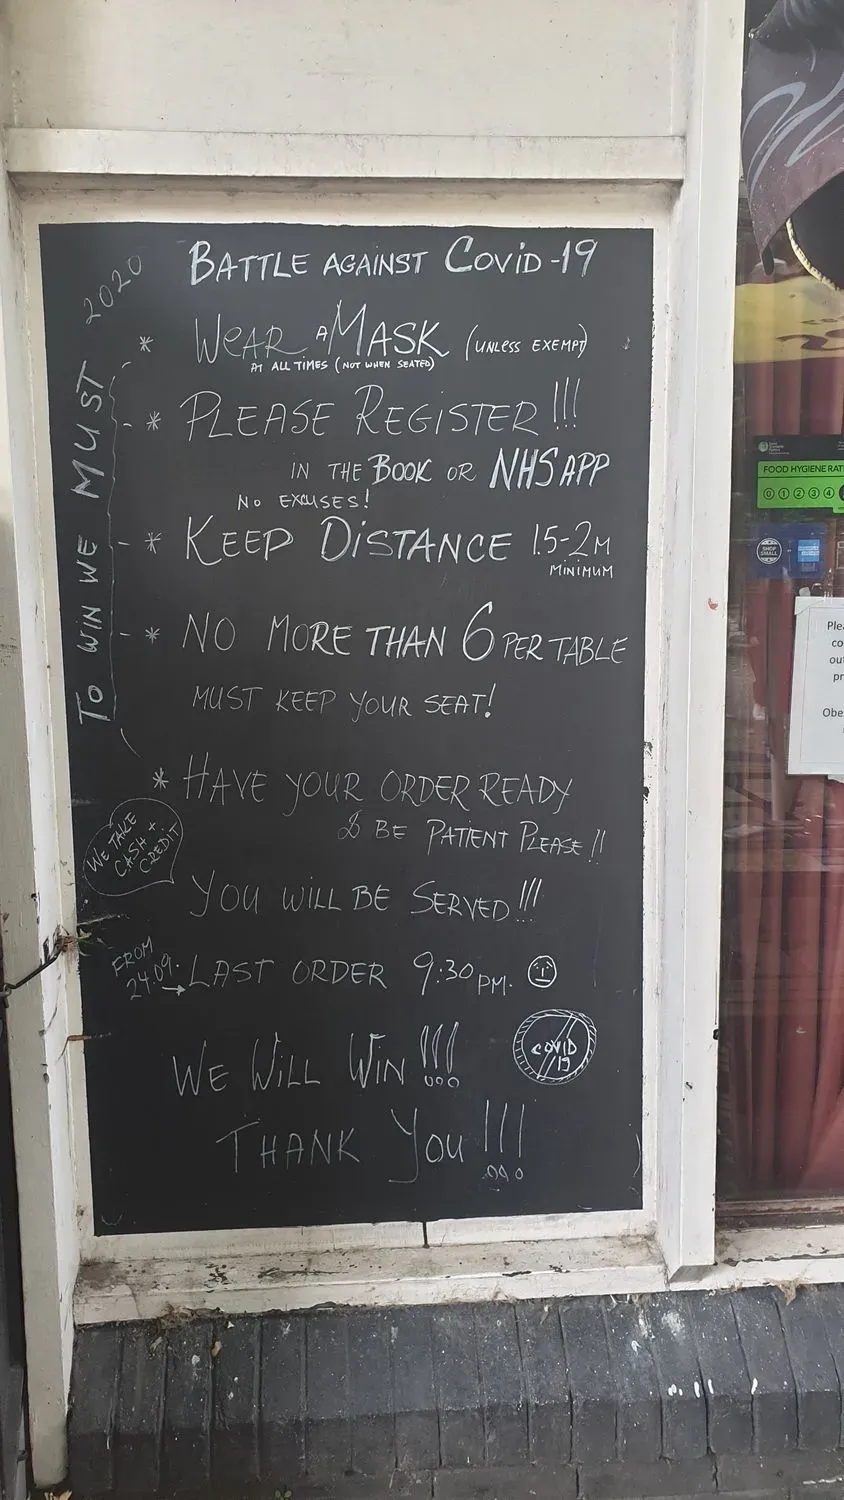 BATTLE AGAINST COVID-19
TO WIN WE MUST 2020
* WEAR A MASK (UNLESS EXEMPT)
AT ALL TIMES (NOT WHEN SEATED)
* PLEASE REGISTER!!!
IN THE BOOK OR NHS APP
NO EXCUSES!
* KEEP DISTANCE 1.5-2M
MINIMUM
* NO MORE THAN 6 PER TABLE
MUST KEEP YOUR SEAT!
* HAVE YOUR ORDER READY
& BE PATIENT PLEASE!!
WE TAKE
CASH +
CREDIT
YOU WILL BE SERVED!!!
FROM
24.09.
→ LAST ORDER 9:30 PM.
WE WILL WIN!!!
COVID
19
THANK YOU!!!
FOOD HYGIENE RAT
0 1 2 3 4
SHOP
SMALL
Plea
co
out
pr
Obe